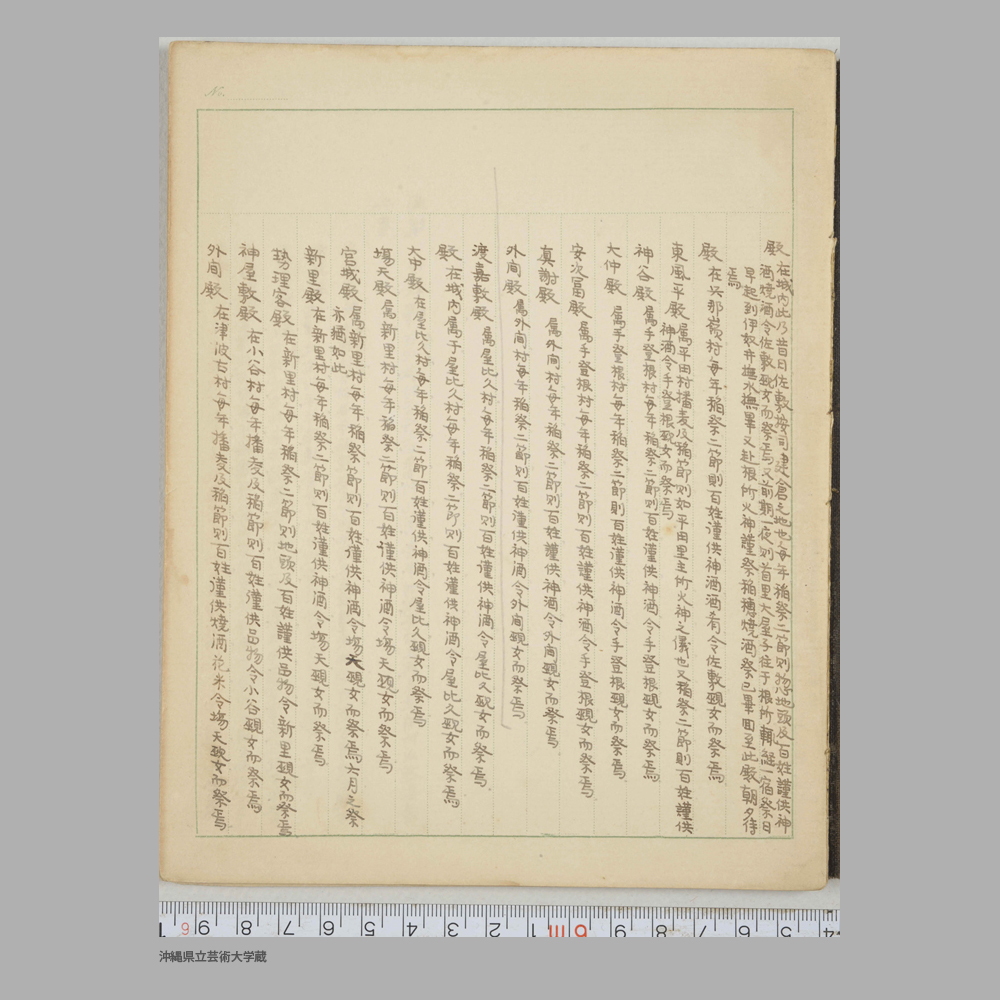 No.
殿 在城内此乃昔日佐敷按司建倉之地也毎年稲祭二節則惣地頭及百姓謹供神
酒焼酒令佐敷覡女而祭焉又前期一夜則首里大屋子往于根所 経一宿祭日
早起到伊奴井撫水撫畢又赴根所火神謹祭稲穂焼酒祭已畢回至此殿朝夕待
焉
殿 在與那嶺村毎年稲祭二節則百姓謹供神酒酒肴令佐敷覡女而祭焉
東風平殿 属平田村播麦及稲節則如平田里主所火神之儀也又稲祭二節則百姓謹供
神酒令手登根覡女而祭焉
神谷殿 属手登根村毎年稲祭二節則百姓謹供神酒令手登根覡女而祭焉
大仲殿 属手登根村毎年稲祭二節則百姓謹供神酒令手登根覡女而祭焉
安次富殿 属手登根村毎年稲祭二節則百姓謹供神酒令手登根覡女而祭焉
真謝殿 属外間村毎年稲祭二節則百姓謹供神酒令外間覡女而祭焉
外間殿 属外間村毎年稲祭二節則百姓謹供神酒令外間覡女而祭焉
渡嘉敷殿 属屋比久村毎年稲祭二節則百姓謹供神酒令屋比久覡女而祭焉
殿 在城内属于屋比久村毎年稲祭二節則百姓謹供神酒令屋比久覡女而祭焉
大中殿 在屋比久村毎年稲祭二節則百姓謹供神酒令屋比久覡女而祭焉
場天殿 属新里村毎年稲祭二節則百姓謹供神酒令場天覡女而祭焉
宮城殿 属新里村毎年稲祭節則百姓謹供神酒令場天覡女而祭焉六月之祭
亦猶如此
新里殿 在新里村毎年稲祭二節則百姓謹供神酒令場天覡女而祭焉
勢理客殿 在新里村毎年稲祭二節則地頭及百姓謹供品物令新里覡女而祭焉
神屋敷殿 在小谷村毎年播麦及稲節則百姓謹供品物令小谷覡女而祭焉
外間殿 在津波古村毎年播麦及稲節則百姓謹供焼酒花米令場天覡女而祭焉
9 8 7 6 5 4 3 2 1m 9 8 7 6 5 4
沖縄県立芸術大学蔵